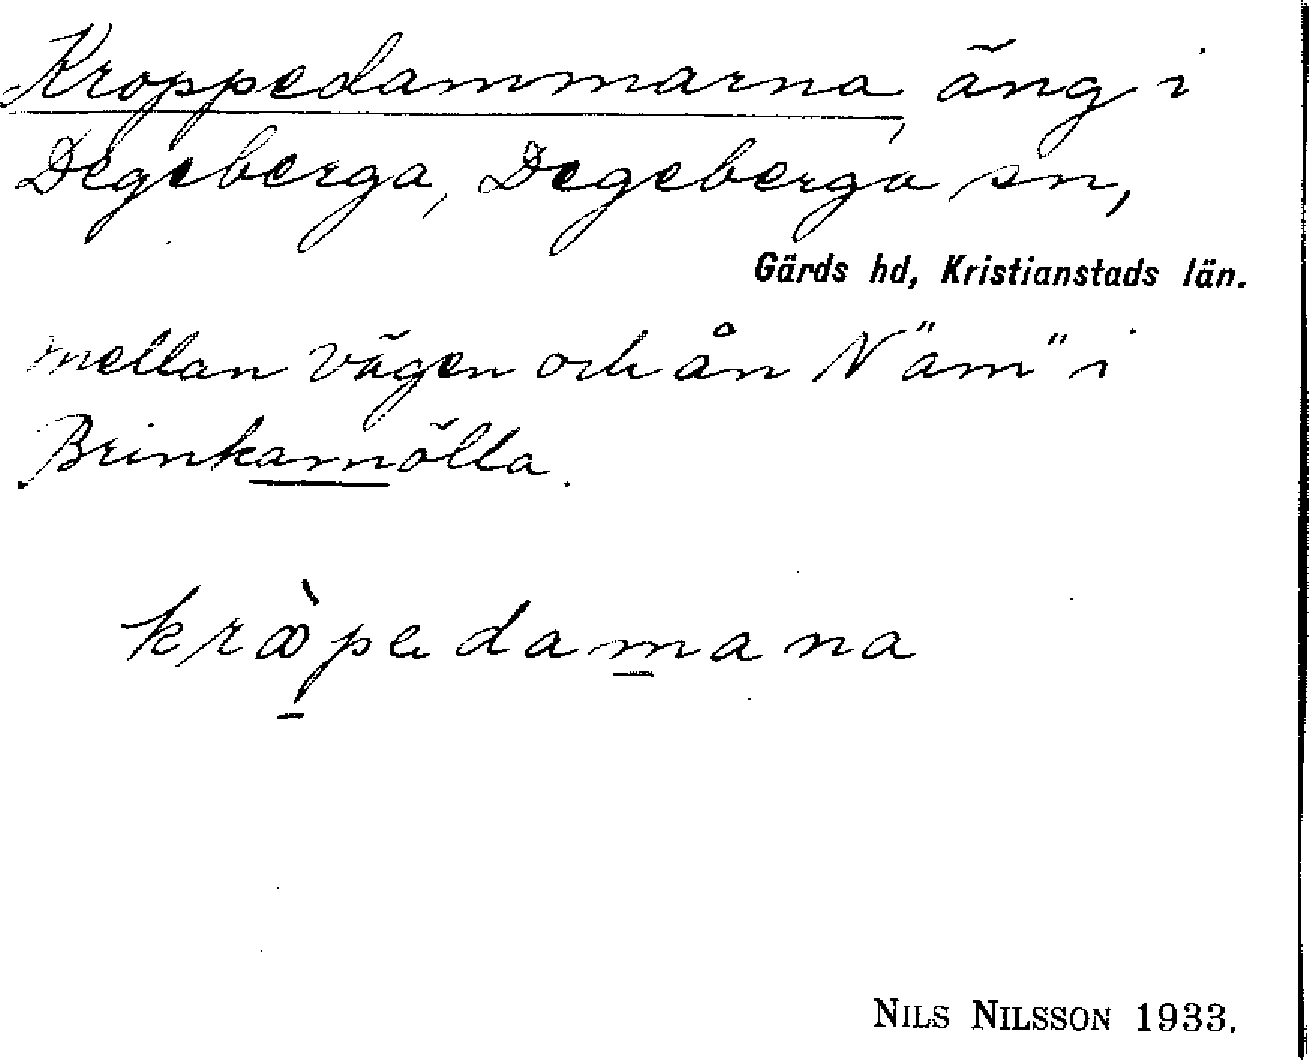 Kroppedammarna, äng i
Degeberga, Degeberga sn,
Gärds hd, Kristianstads län.
mellan vägen och ån N "äm" i
Brinkamölla.
krꝏ̀pedamana
NILS NILSSON 1933.